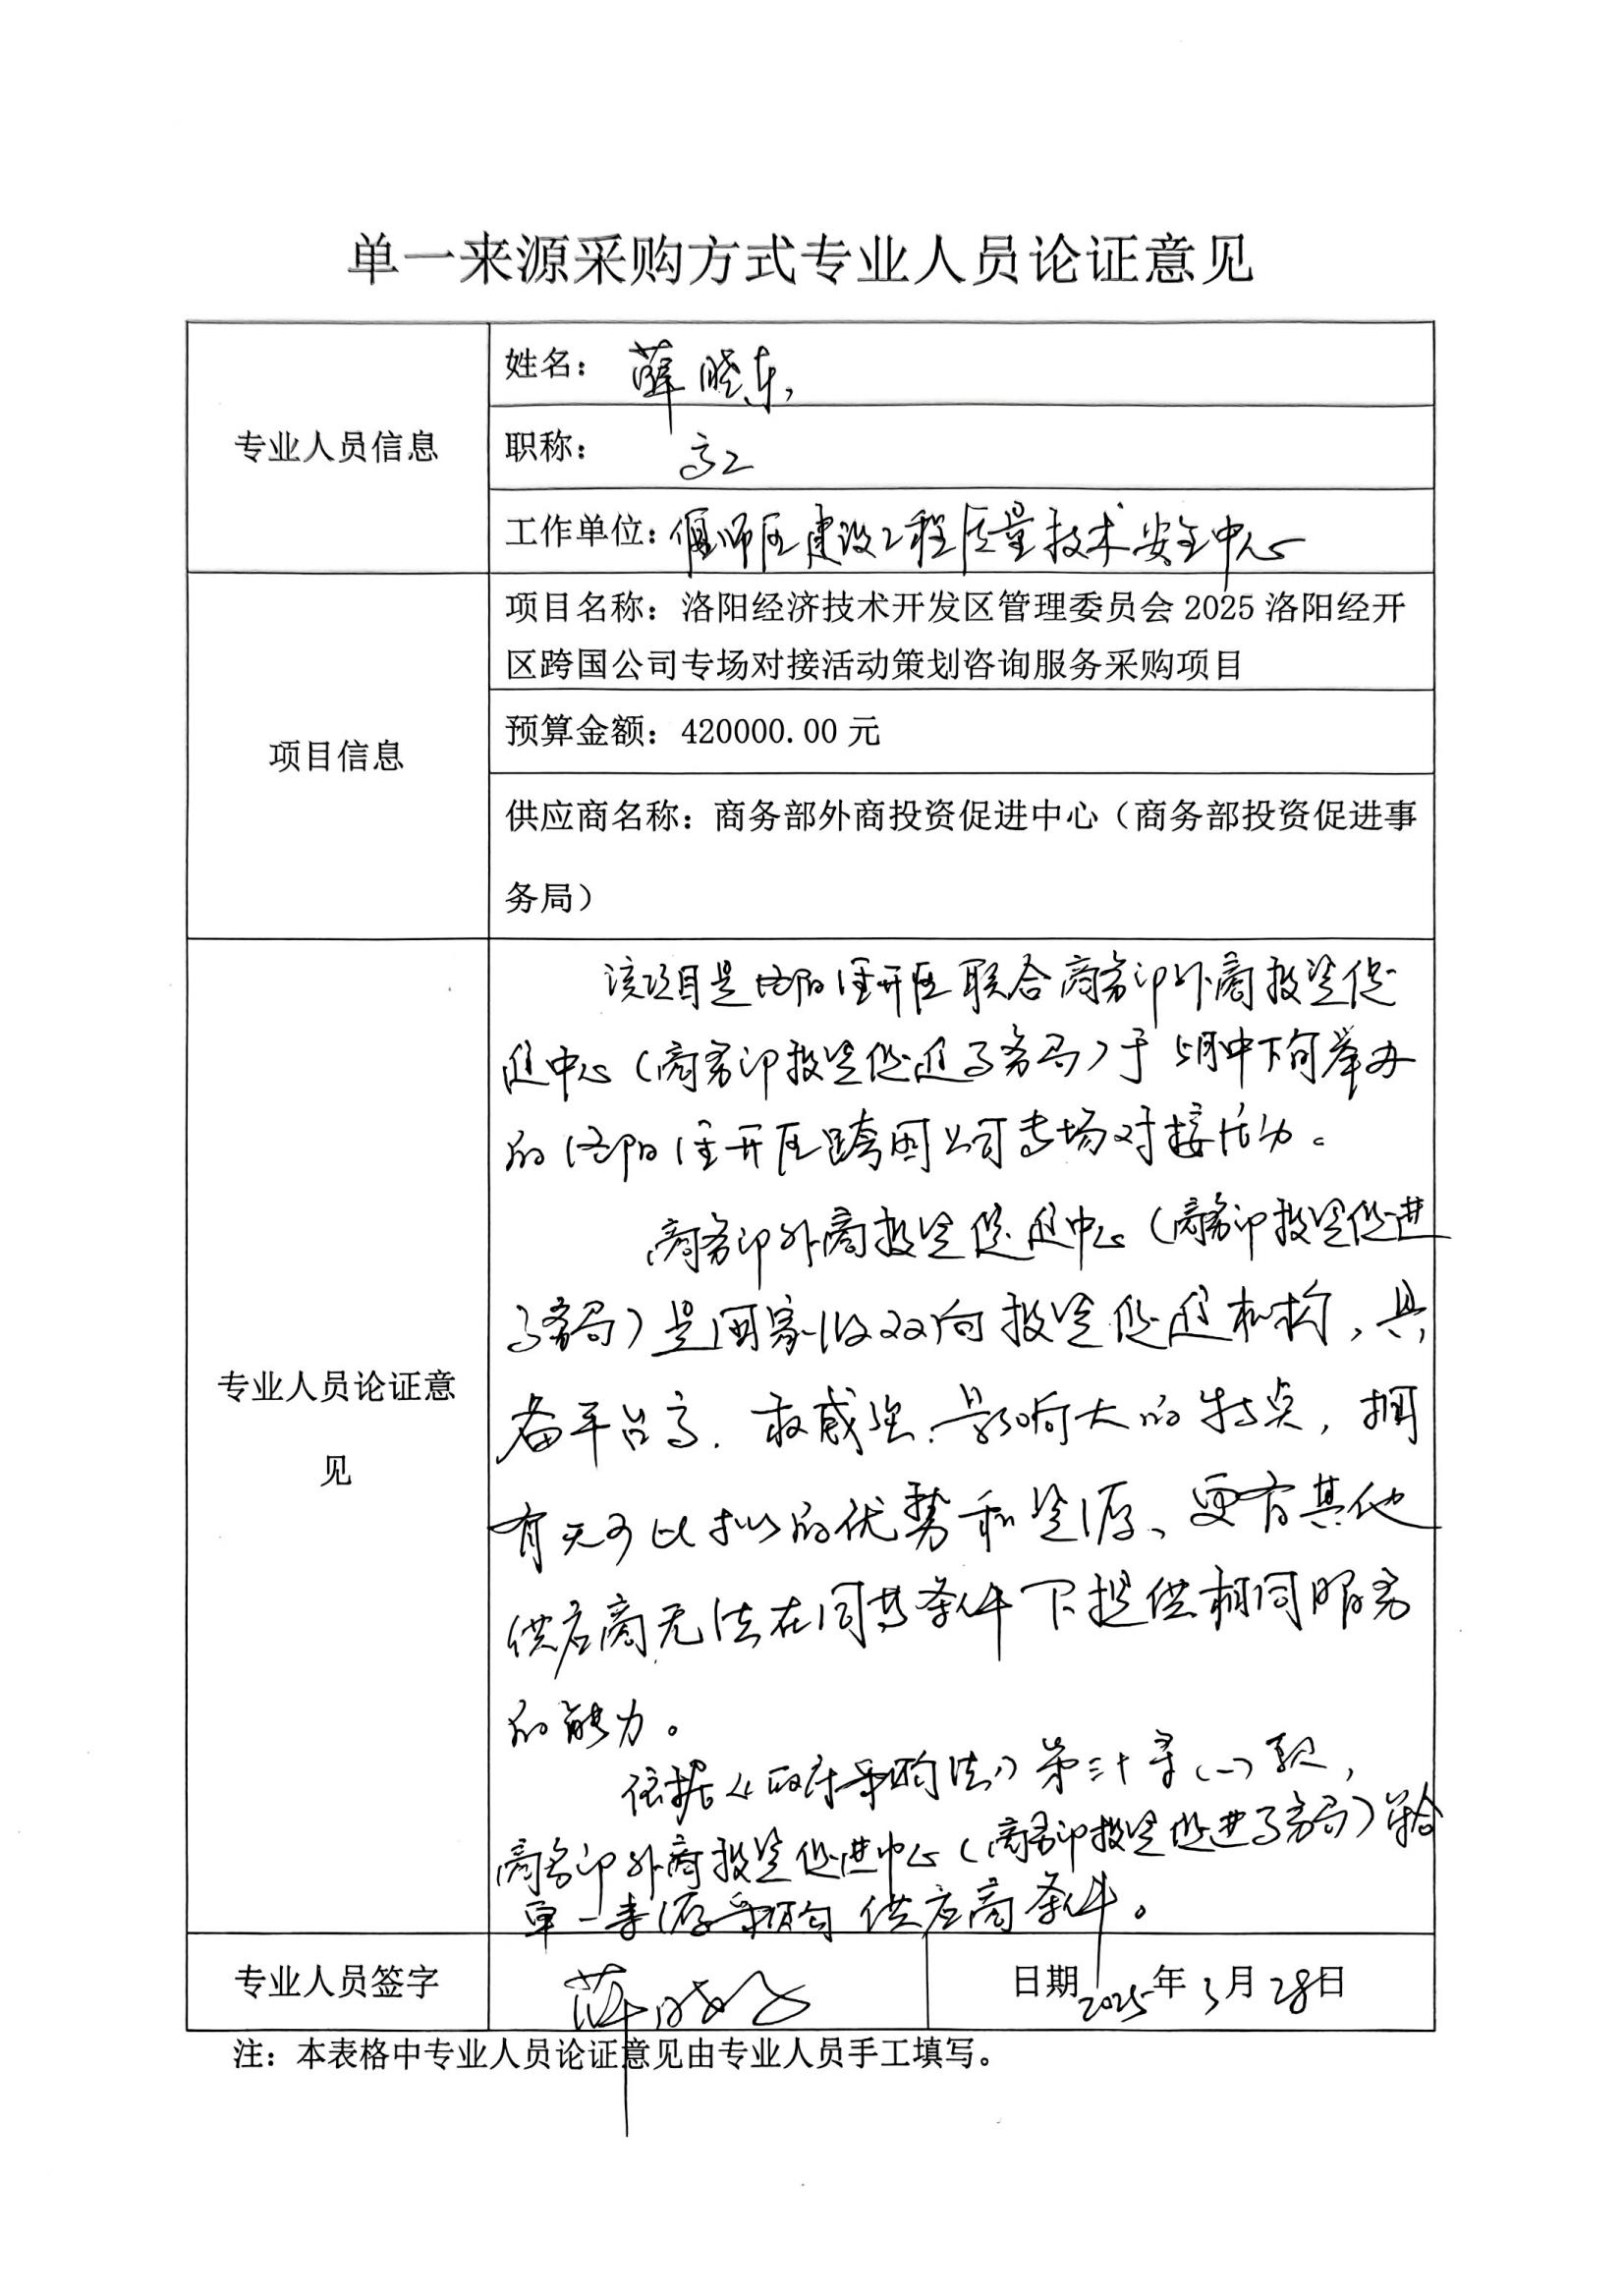 单一来源采购方式专业人员论证意见
专业人员信息
姓名：薛晓东
职称：高工
工作单位：偃师区建设工程质量技术安全中心
项目信息
项目名称：洛阳经济技术开发区管理委员会2025洛阳经开
区跨国公司专场对接活动策划咨询服务采购项目
预算金额：420000.00元
供应商名称：商务部外商投资促进中心（商务部投资促进事
务局）
专业人员论证意
见
该项目是洛阳经开区联合商务部外商投资促
进中心（商务部投资促进事务局）于5月中下旬举办
的洛阳经开区跨国公司专场对接活动。
商务部外商投资促进中心（商务部投资促进
事务局）是国家级双向投资促进机构，具
备平台高、权威强、影响大的特点，拥
有无可比拟的优势和资源、更有其他
供应商无法在同等条件下提供相同服务
的能力。
依据《政府采购法》第三十条（一）款，
商务部外商投资促进中心（商务部投资促进事务局）符合
单一来源采购供应商条件。
专业人员签字
薛晓东
日期2025年3月28日
注：本表格中专业人员论证意见由专业人员手工填写。